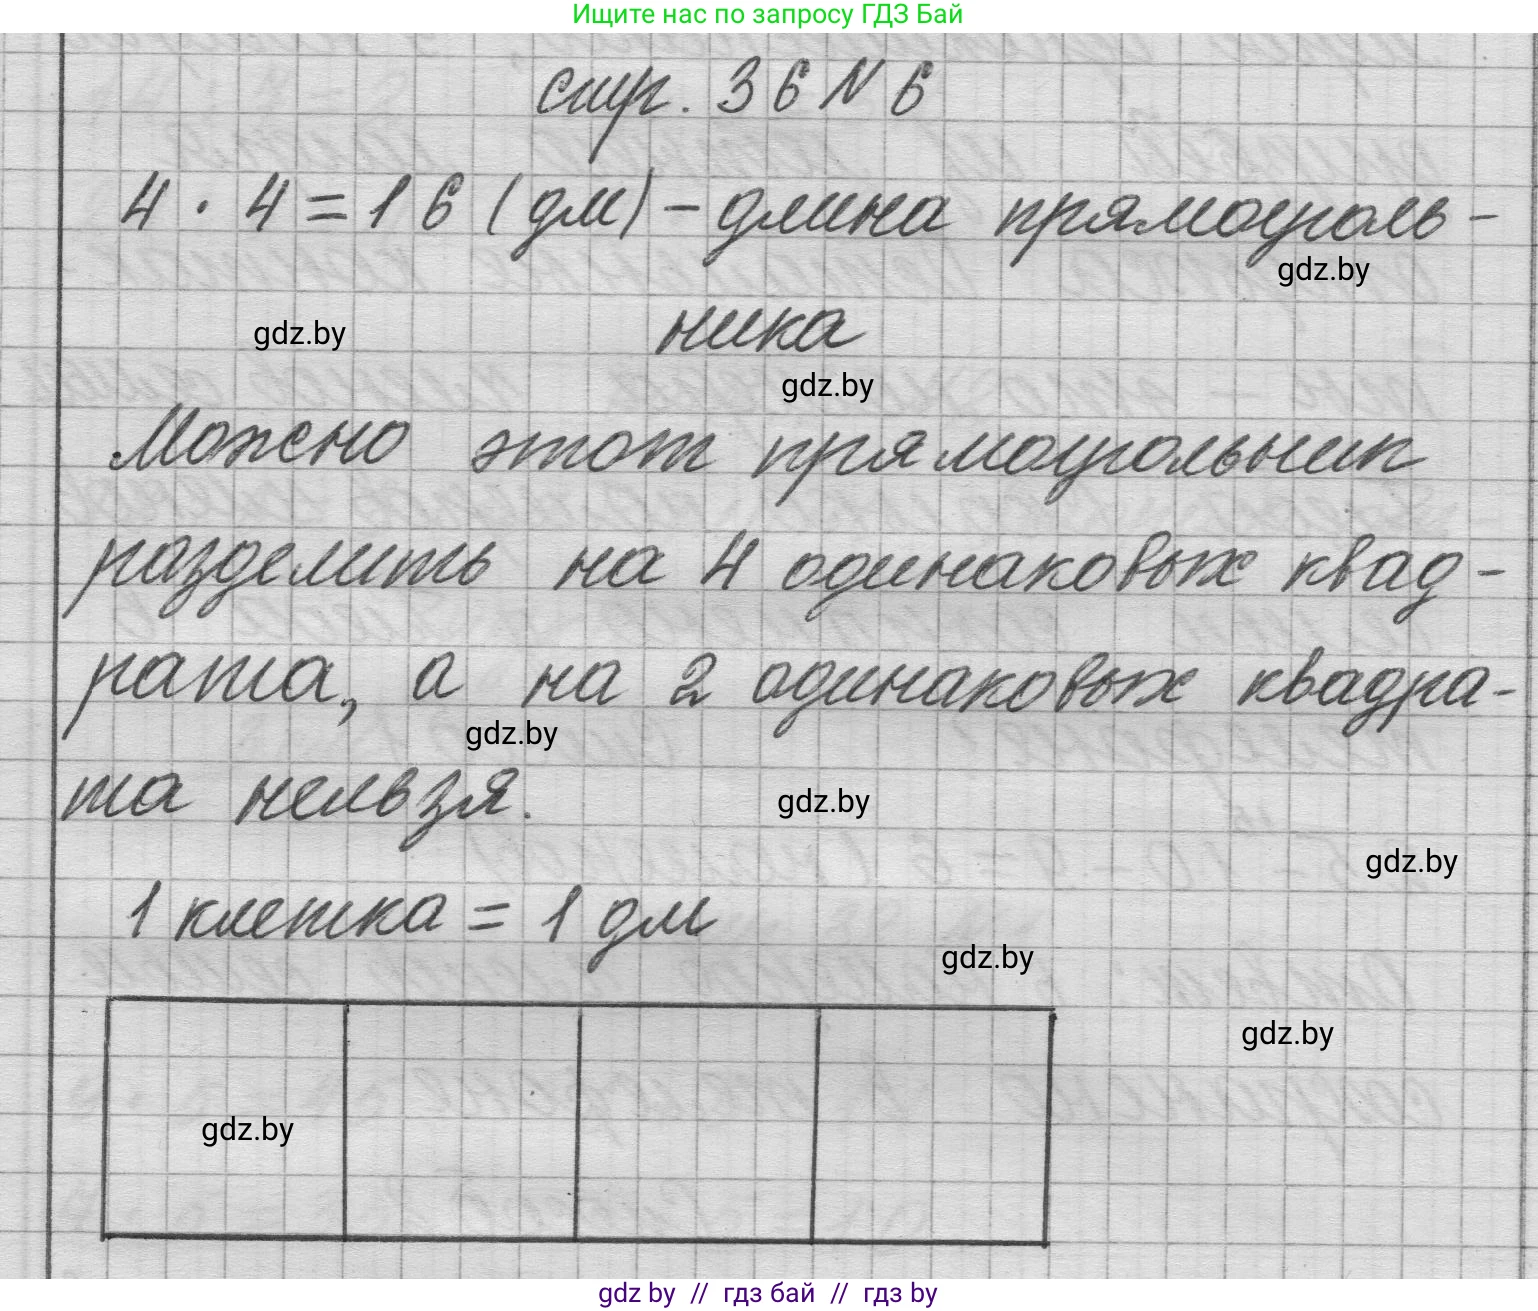 Ищите нас по запросу ГДЗ Бай
стр. 36 N 6
4 · 4 = 16 (дм) - длина прямоуголь-
gdz.by
gdz.by
ника
gdz.by
Можно этот прямоугольник
разделить на 4 одинаковых квад-
рата, а на 2 одинаковых квадра-
gdz.by
та нельзя.
gdz.by
gdz.by
1 клетка = 1 дм
gdz.by
gdz.by
gdz.by
gdz by // гдз бай // гдз by